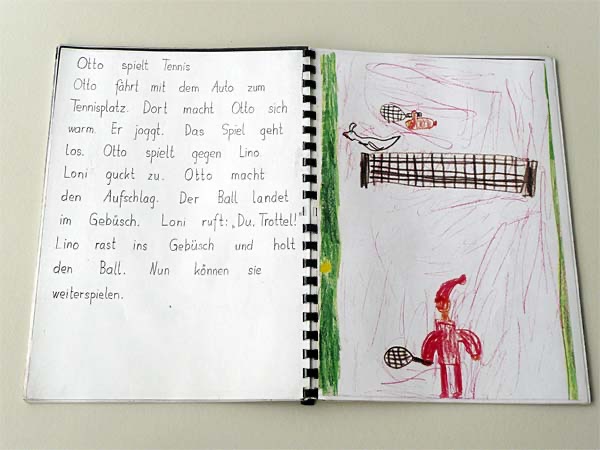 Otto spielt Tennis
Otto fährt mit dem Auto zum
Tennisplatz. Dort macht Otto sich
warm. Er joggt. Das Spiel geht
los. Otto spielt gegen Lino
Loni guckt zu. Otto macht
den Aufschlag. Der Ball landet
im Gebüsch. Loni ruft: „Du, Trottel!"
Lino rast ins Gebüsch und holt
den Ball. Nun können sie
weiterspielen.